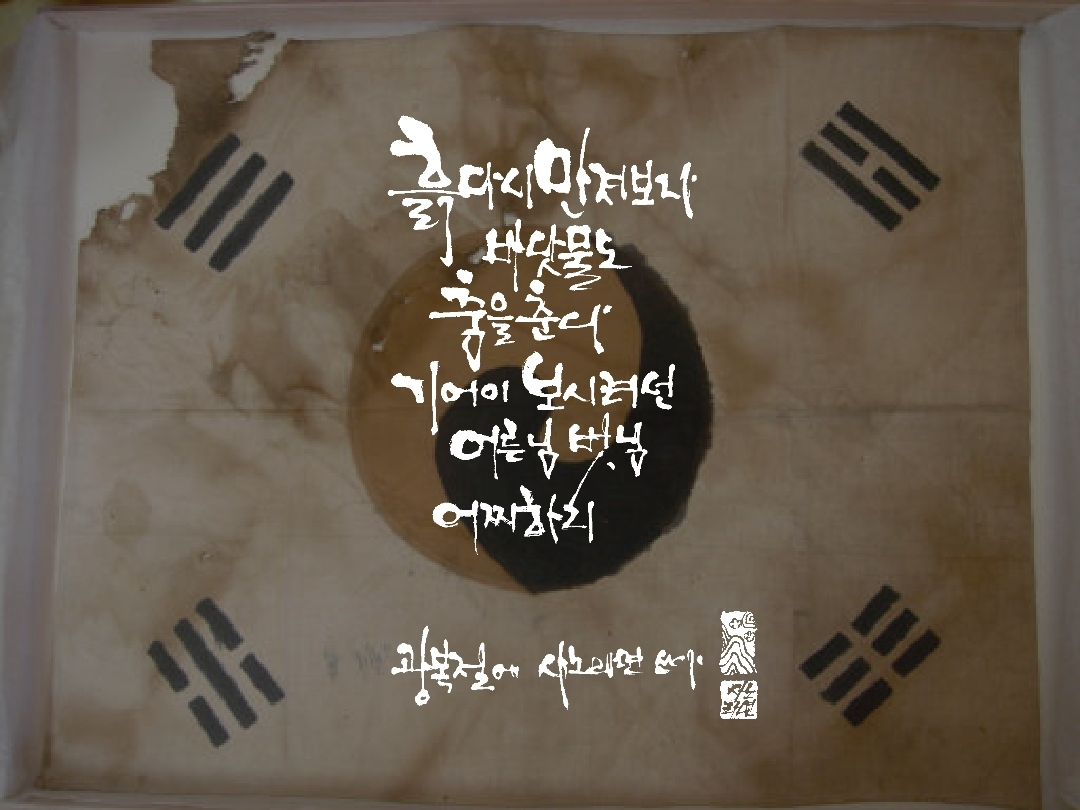 흙다시만져보자
바닷물도
춤을춘다
기어이 보시려던
어른님 벗님
어찌하리
광복절에 사노라면 쓰다